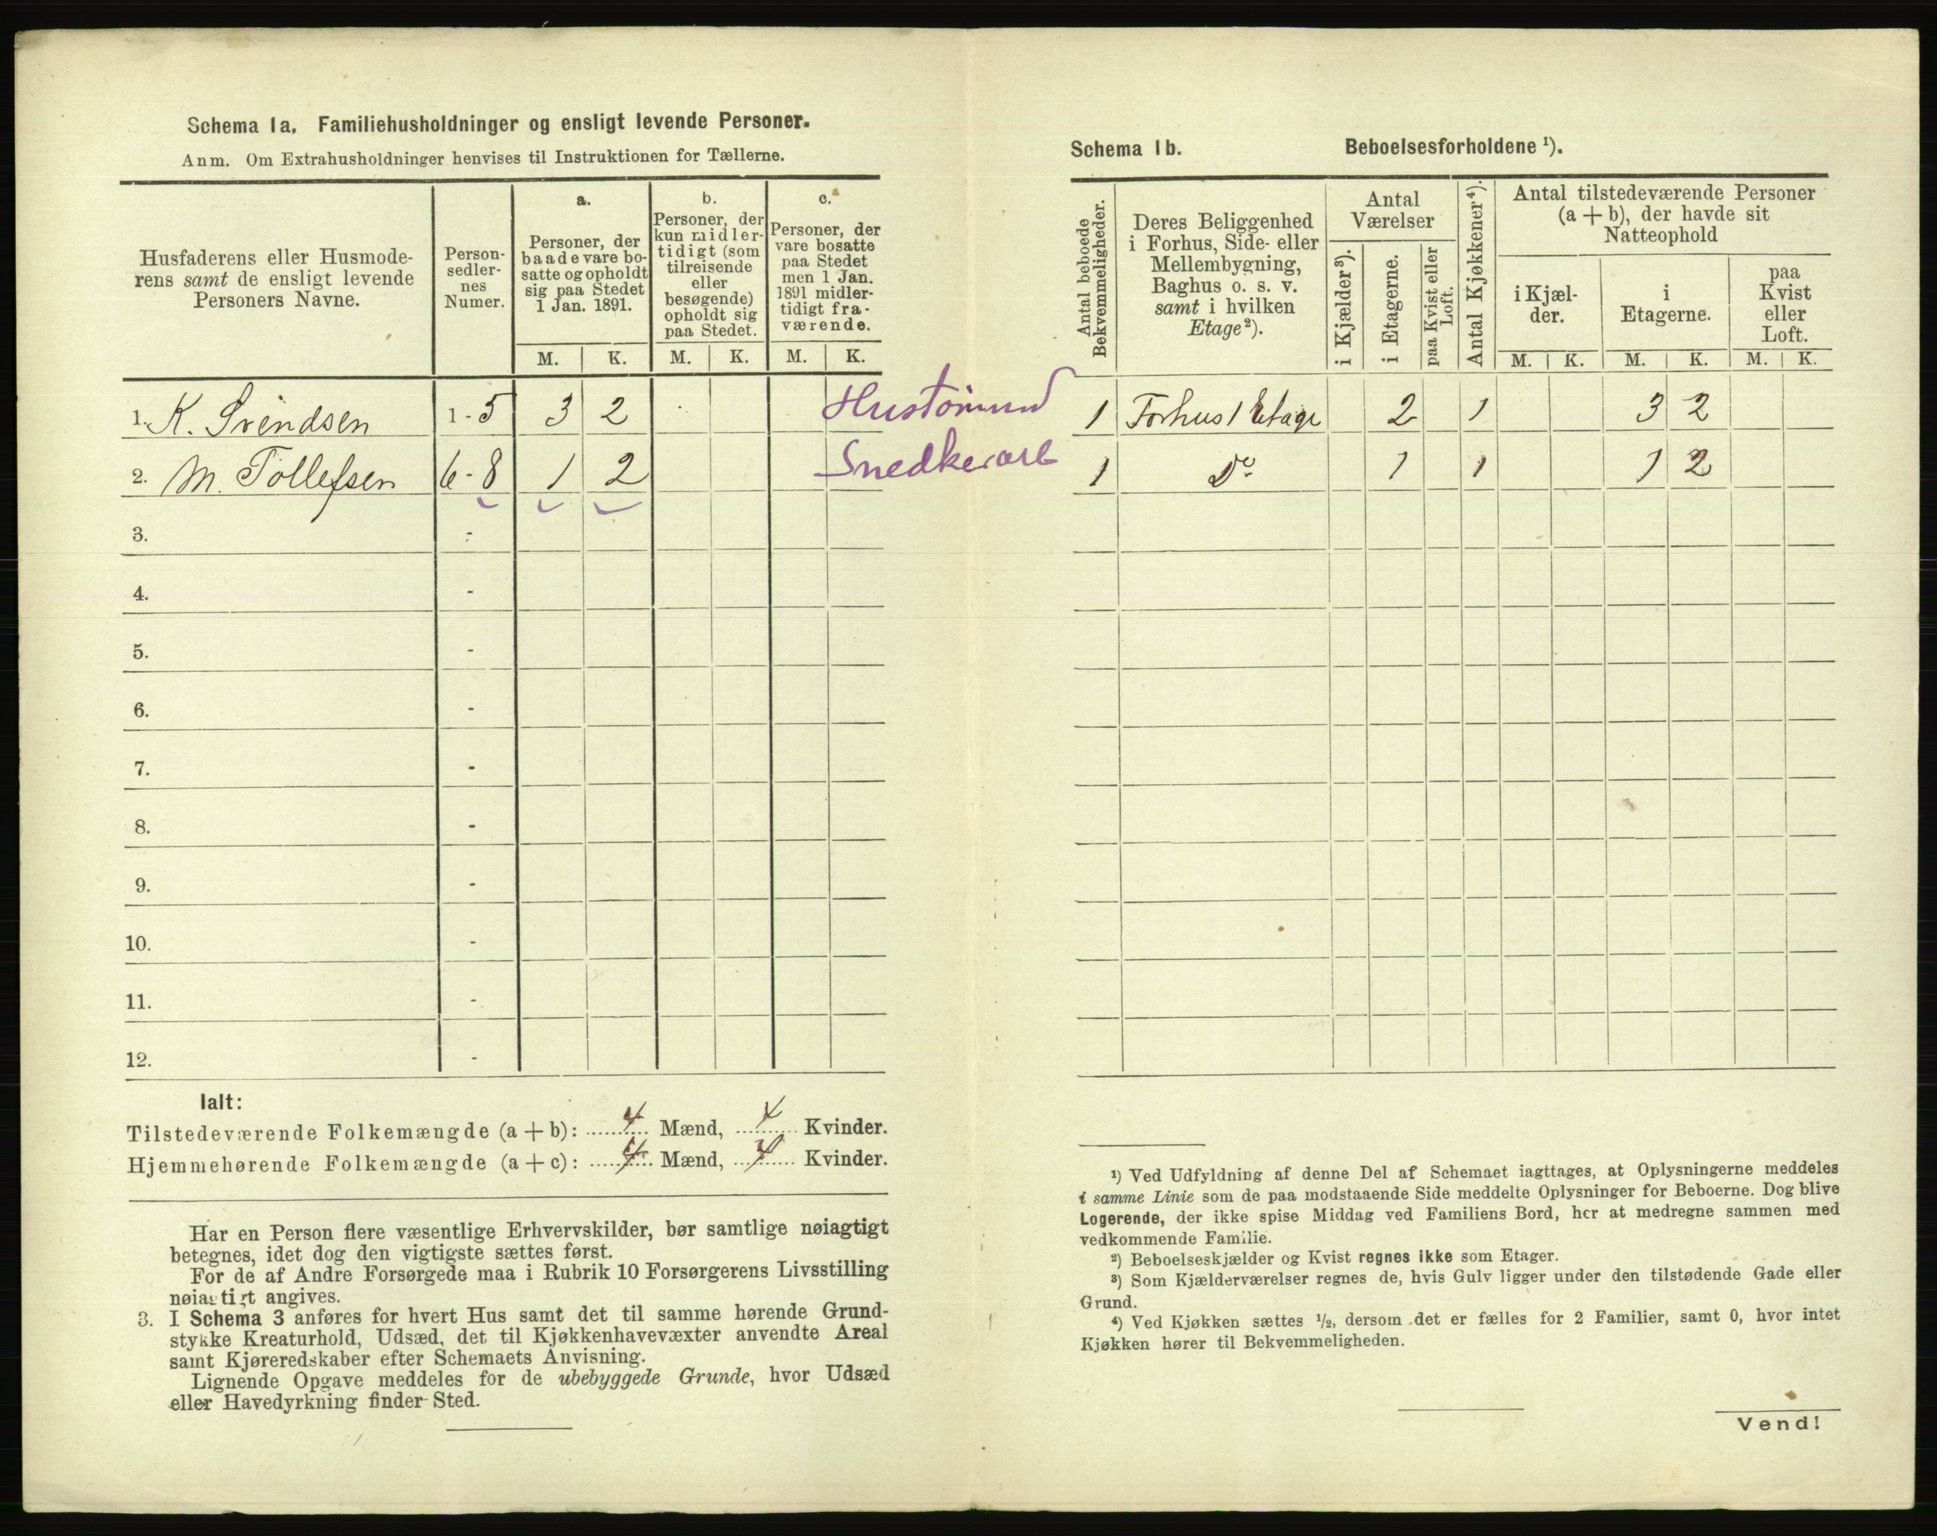 Schema 1a. Familiehusholdninger og ensligt levende Personer.
Anm. Om Extrahusholdninger henvises til Instruktionen for Tællerne.
Husfaderens eller Husmode-
rens samt de ensligt levende
Personers Navne.
Person-
sedler-
nes
Numer.
a.
Personer, der
baade vare bo-
satte og opholdt
sig paa Stedet
1 Jan. 1891.
b.
Personer, der
kun midler-
tidigt (som
tilreisende
eller
besøgende)
opholdt sig
paa Stedet.
c.
Personer, der
vare bosatte
paa Stedet
men 1 Jan.
1891 midler-
tidigt fra-
værende.
M. K. M. K. M. K.
1. K. Svendsen 1-5 3 2 Hustømmd
2. M. Tollefsen 6-8 1 2 Snedkerarb
3. -
4. -
5. -
6. -
7. -
8. -
9. -
10. -
11. -
12. -
Ialt:
Tilstedeværende Folkemængde (a + b): 4 Mænd, 4 Kvinder.
Hjemmehørende Folkemængde (a + c): 4 Mænd, 4 Kvinder.
Har en Person flere væsentlige Erhvervskilder, bør samtlige nøiagtigt
betegnes, idet dog den vigtigste sættes først.
For de af Andre Forsørgede maa i Rubrik 10 Forsørgerens Livsstilling
nøiagtigt angives.
3. I Schema 3 anføres for hvert Hus samt det til samme hørende Grund-
stykke Kreaturhold, Udsæd, det til Kjøkkenhavevæxter anvendte Areal
samt Kjøreredskaber efter Schemaets Anvisning.
Lignende Opgave meddeles for de ubebyggede Grunde, hvor Udsæd
eller Havedyrkning finder Sted.
Schema 1b. Beboelsesforholdene ¹).
Antal beboede
Bekvemmeligheder.
Deres Beliggenhed
i Forhus, Side- eller
Mellembygning,
Baghus o. s. v.
samt i hvilken
Etage²).
Antal
Værelser
i Kjælder³).
i Etagerne.
paa Kvist eller
Loft.
Antal Kjøkkener⁴).
Antal tilstedeværende Personer
(a + b), der havde sit
Natteophold
i Kjæl-
der.
i
Etagerne.
paa
Kvist
eller
Loft.
M. K. M. K. M. K.
1 Forhus 1 Etage 2 1 3 2
1 Do 1 1 1 2
¹) Ved Udfyldning af denne Del af Schemaet iagttages, at Oplysningerne meddeles
i samme Linie som de paa modstaaende Side meddelte Oplysninger for Beboerne. Dog blive
Logerende, der ikke spise Middag ved Familiens Bord, her at medregne sammen med
vedkommende Familie.
²) Beboelseskjælder og Kvist regnes ikke som Etager.
³) Som Kjælderværelser regnes de, hvis Gulv ligger under den tilstødende Gade eller
Grund.
⁴) Ved Kjøkken sættes ½, dersom det er fælles for 2 Familier, samt 0, hvor intet
Kjøkken hører til Bekvemmeligheden.
Vend!